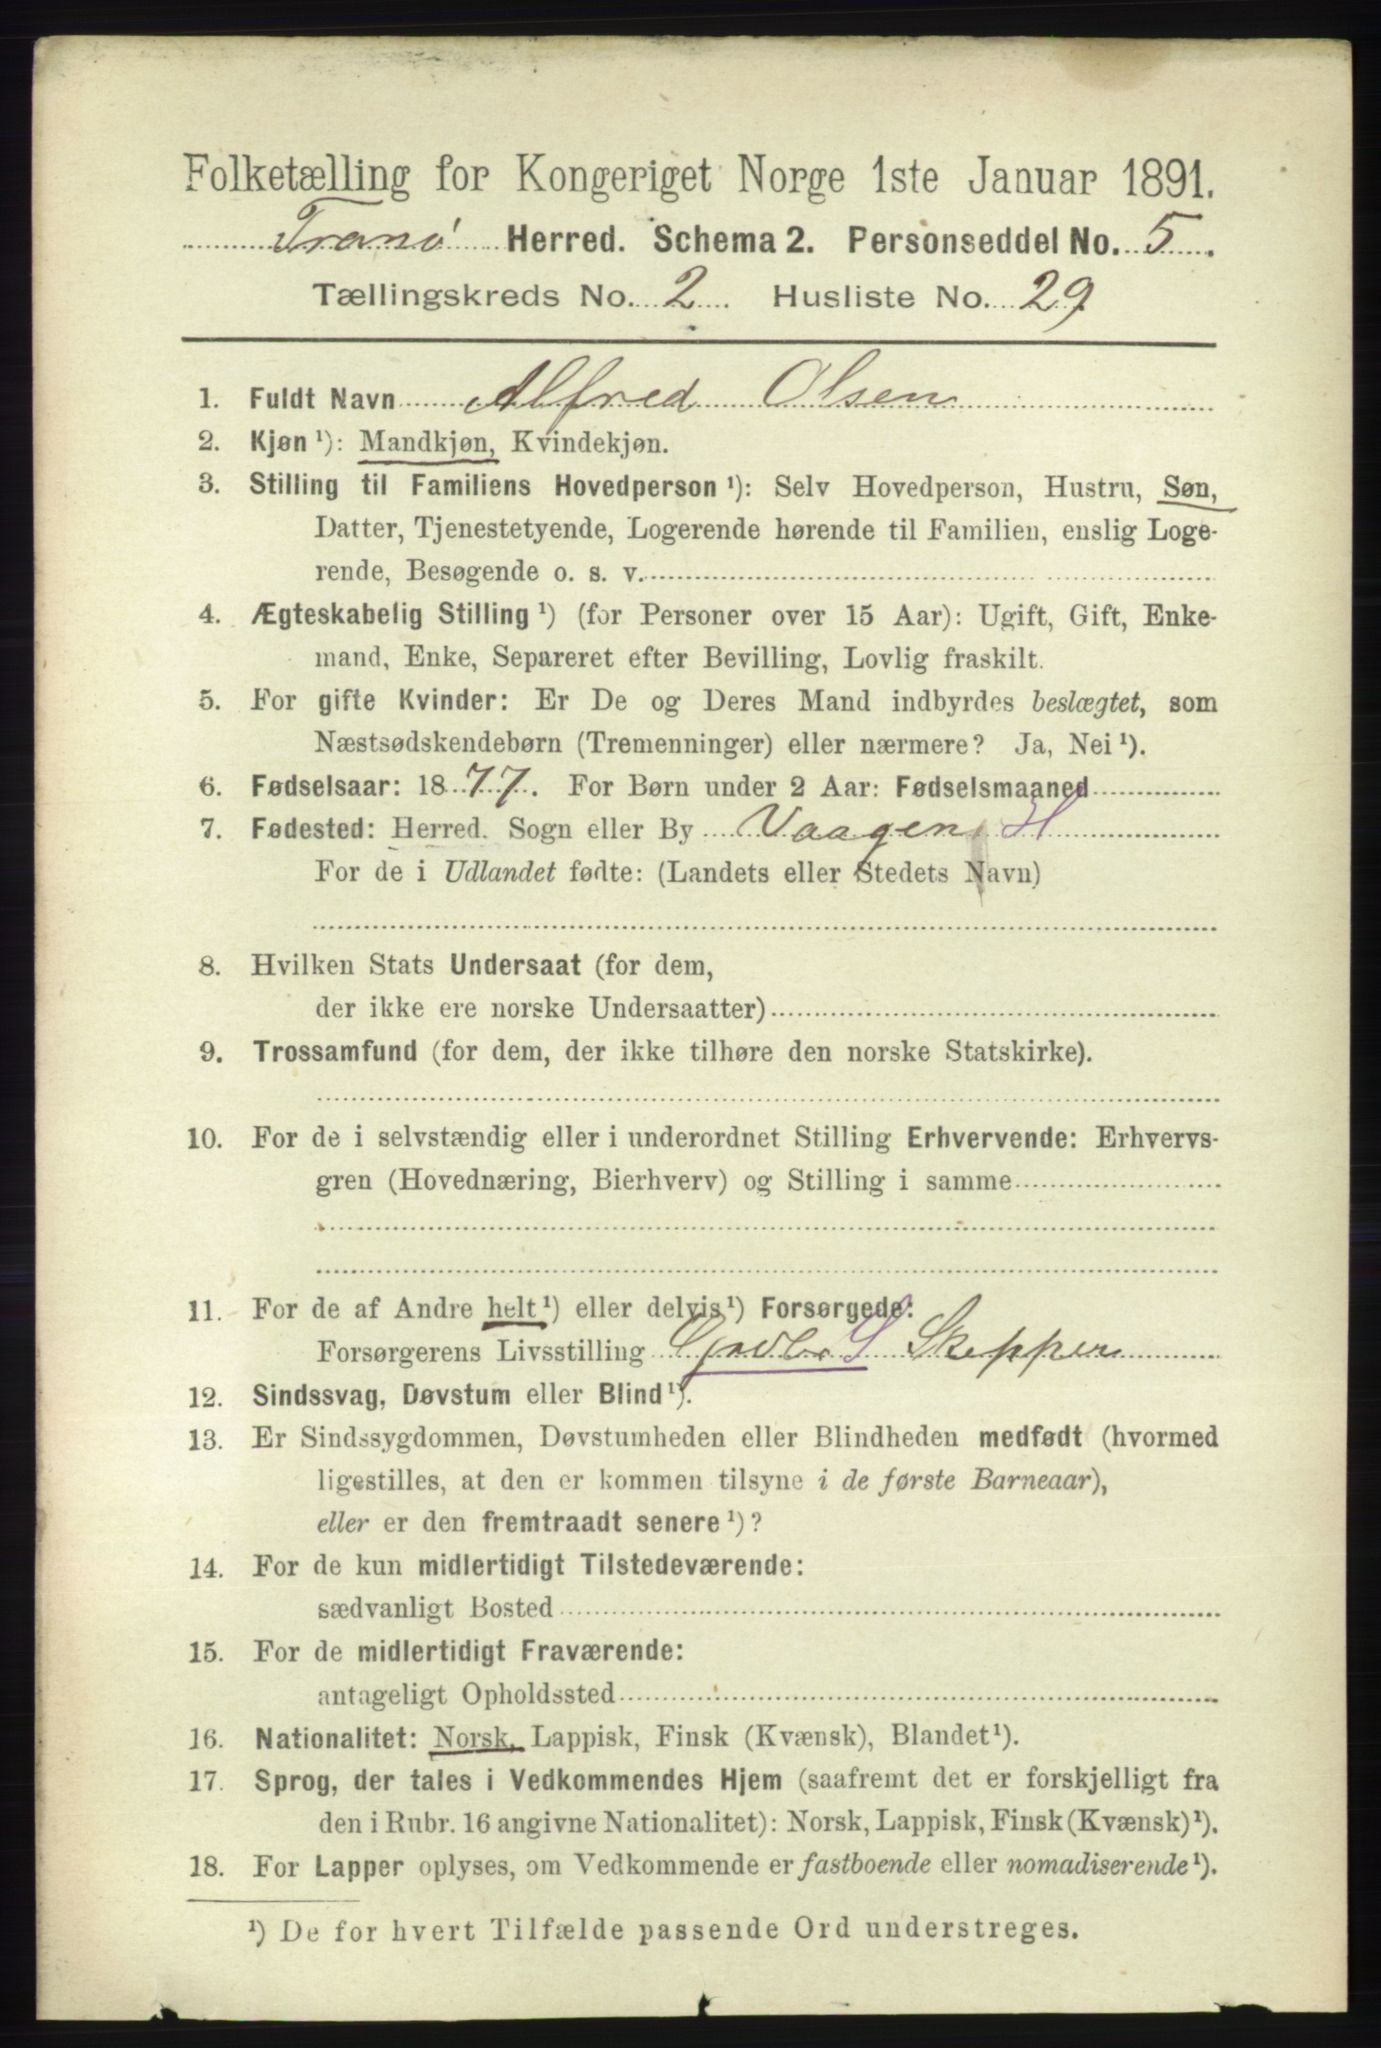 Folketælling for Kongeriget Norge 1ste Januar 1891.
Tranø Herred. Schema 2. Personseddel No. 5.
Tællingskreds No. 2. Husliste No. 29
1. Fuldt Navn Alfred Olsen
2. Kjøn ¹): Mandkjøn, Kvindekjøn.
3. Stilling til Familiens Hovedperson ¹): Selv Hovedperson, Hustru, Søn,
Datter, Tjenestetyende, Logerende hørende til Familien, enslig Loge-
rende, Besøgende o. s. v.
4. Ægteskabelig Stilling ¹) (for Personer over 15 Aar): Ugift, Gift, Enke-
mand, Enke, Separeret efter Bevilling, Lovlig fraskilt.
5. For gifte Kvinder: Er De og Deres Mand indbyrdes beslægtet, som
Næstsødskendebørn (Tremenninger) eller nærmere? Ja, Nei ¹).
6. Fødselsaar: 1877. For Børn under 2 Aar: Fødselsmaaned
7. Fødested: Herred. Sogn eller By Vaagen H
For de i Udlandet fødte: (Landets eller Stedets Navn)
8. Hvilken Stats Undersaat (for dem,
der ikke ere norske Undersaatter)
9. Trossamfund (for dem, der ikke tilhøre den norske Statskirke).
10. For de i selvstændig eller i underordnet Stilling Erhvervende: Erhvervs-
gren (Hovednæring, Bierhverv) og Stilling i samme
11. For de af Andre helt ¹) eller delvis ¹) Forsørgede:
Forsørgerens Livsstilling S Skepper
12. Sindssvag, Døvstum eller Blind ¹).
13. Er Sindssygdommen, Døvstumheden eller Blindheden medfødt (hvormed
ligestilles, at den er kommen tilsyne i de første Barneaar),
eller er den fremtraadt senere ¹)?
14. For de kun midlertidigt Tilstedeværende:
sædvanligt Bosted
15. For de midlertidigt Fraværende:
antageligt Opholdssted
16. Nationalitet: Norsk, Lappisk, Finsk (Kvænsk), Blandet ¹).
17. Sprog, der tales i Vedkommendes Hjem (saafremt det er forskjelligt fra
den i Rubr. 16 angivne Nationalitet): Norsk, Lappisk, Finsk (Kvænsk) ¹).
18. For Lapper oplyses, om Vedkommende er fastboende eller nomadiserende ¹).
¹) De for hvert Tilfælde passende Ord understreges.